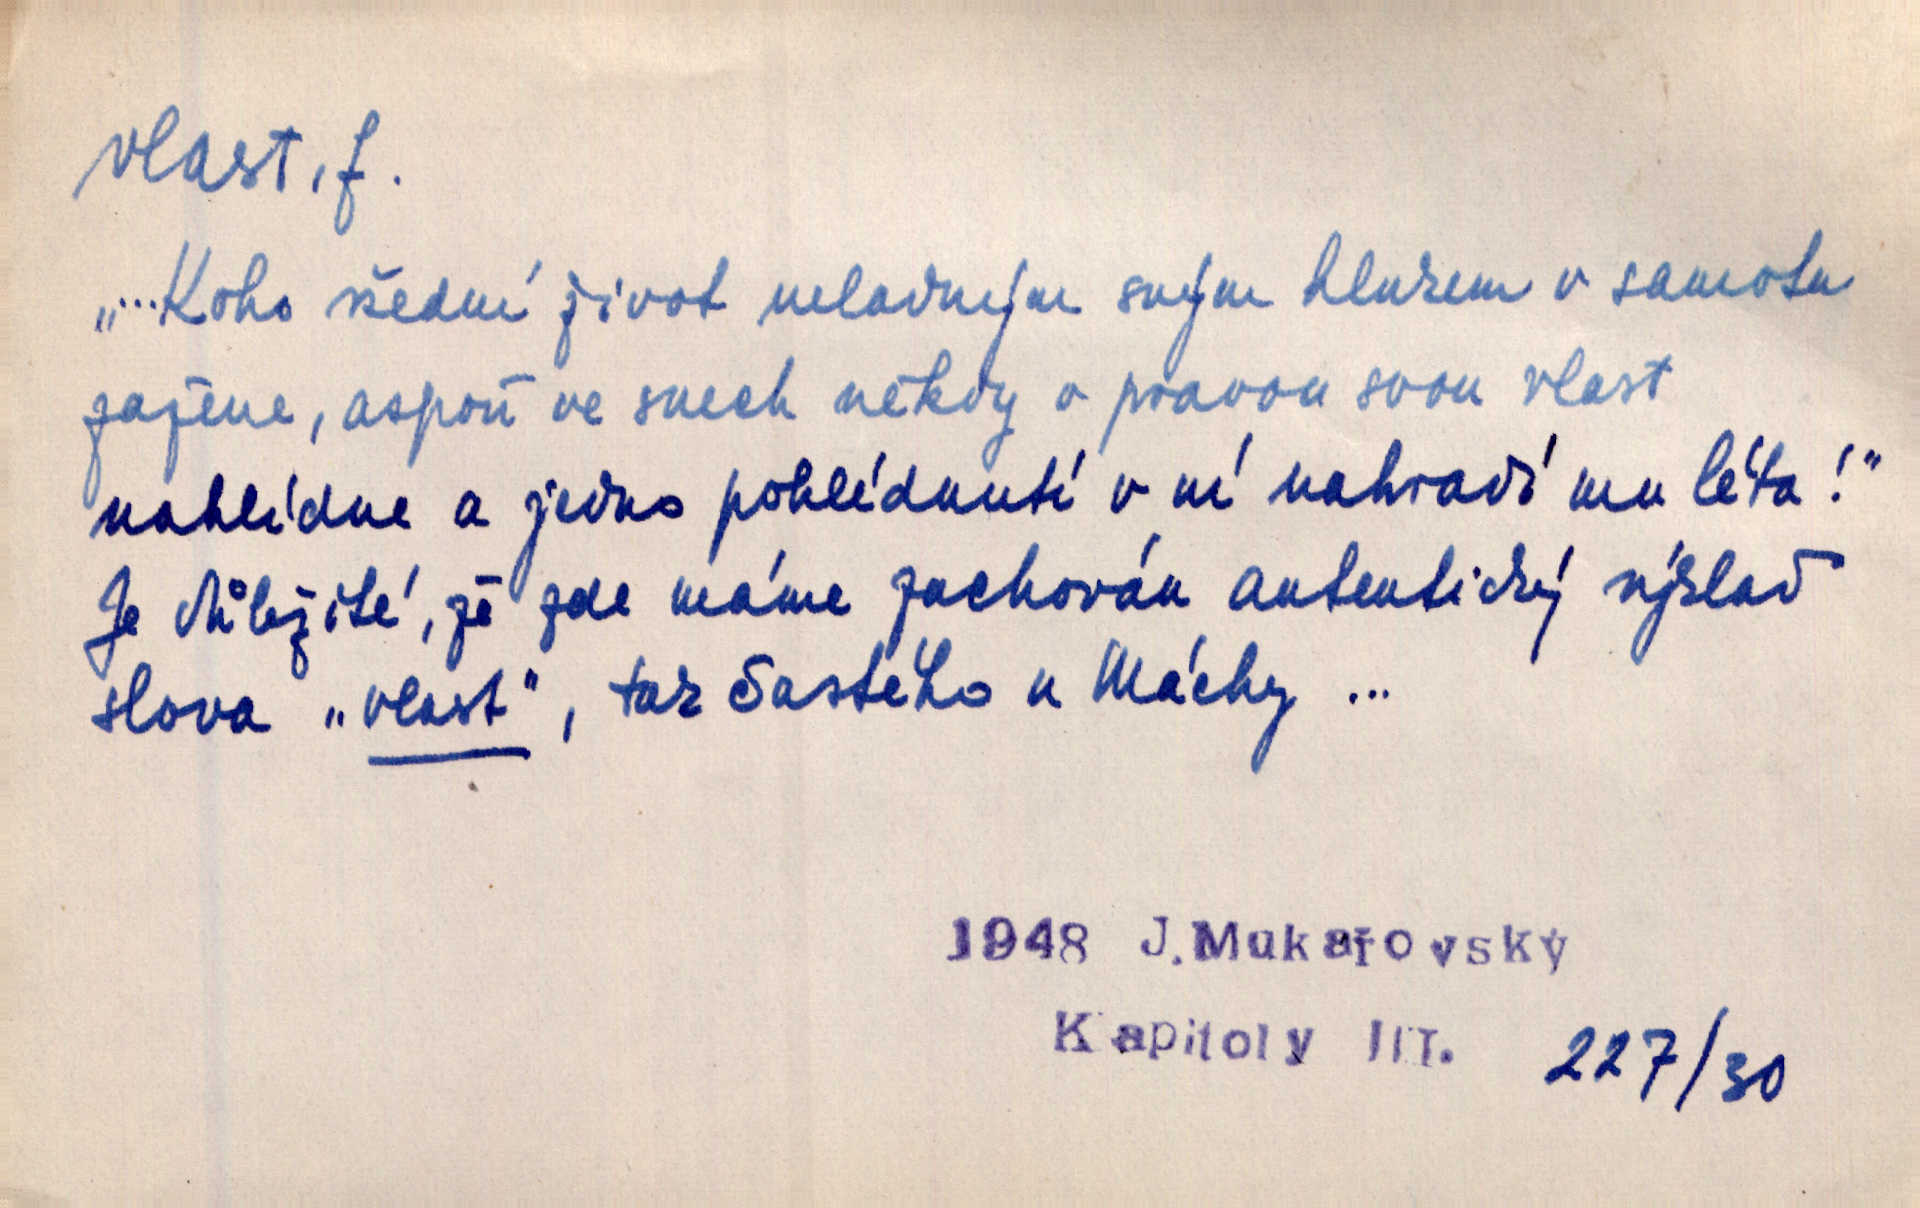 vlast, f.
„...Koho všední život neladným svým hlukem v samotu
zažene, aspoň ve snech někdy v pravou svou vlast
nahlédne a jedno pohlédnutí v ní nahradí mu léta!"
Je důležité, že zde máme zachován autentický výklad
slova „vlast", tak častého u Máchy ...
1948 J.Mukařovský
Kapitoly III.
227/30